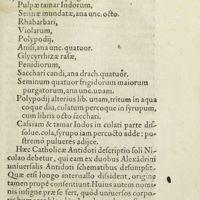 Pulpæ tamar Indorum,
Sennæ mundatæ, ana unc. octo.
Rhabarbari,
Violarum,
Polypodij,
Anisi, ana unc. quatuor.
Glycyrrhizæ rasæ,
Penidiorum,
Sacchari candi, ana drach. quatuor.
Seminum quatuor frigidorum maiorum
purgatorum, ana unc. unam.
Polypodij alterius lib. unam, tritum in aqua
coque diu, colatum percoque in syrupum,
cum libris octo sacchari.
Cassiam & tamar Indos in colati parte dis-
solue. cola, syrupo iam percocto adde: po-
stremò pulueres adijce.
Hæc Catholicæ Antidoti descriptio soli Ni-
colao debetur, qui eam ex duobus Alexãdrini
uniuersalis Antidoti schematibus desumpsit.
Quæ etsi longo internallo dissident, origine
tamen propè consentiunt. Huius autem nomẽ
nis insigne præ se fert, quòd uniuersos corpo-